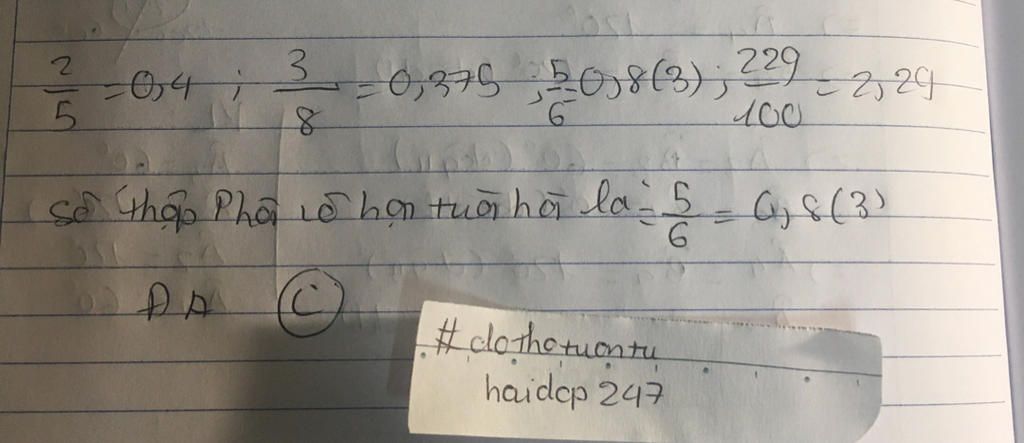 2/5 = 0,4 ; 3/8 = 0,375 ; 5/6 = 0,8(3) ; 229/100 = 2,29
số thập phân vô hạn tuần hoàn là = 5/6 = 0,8(3)
ĐA C
#dothotuontu
haidcp 247